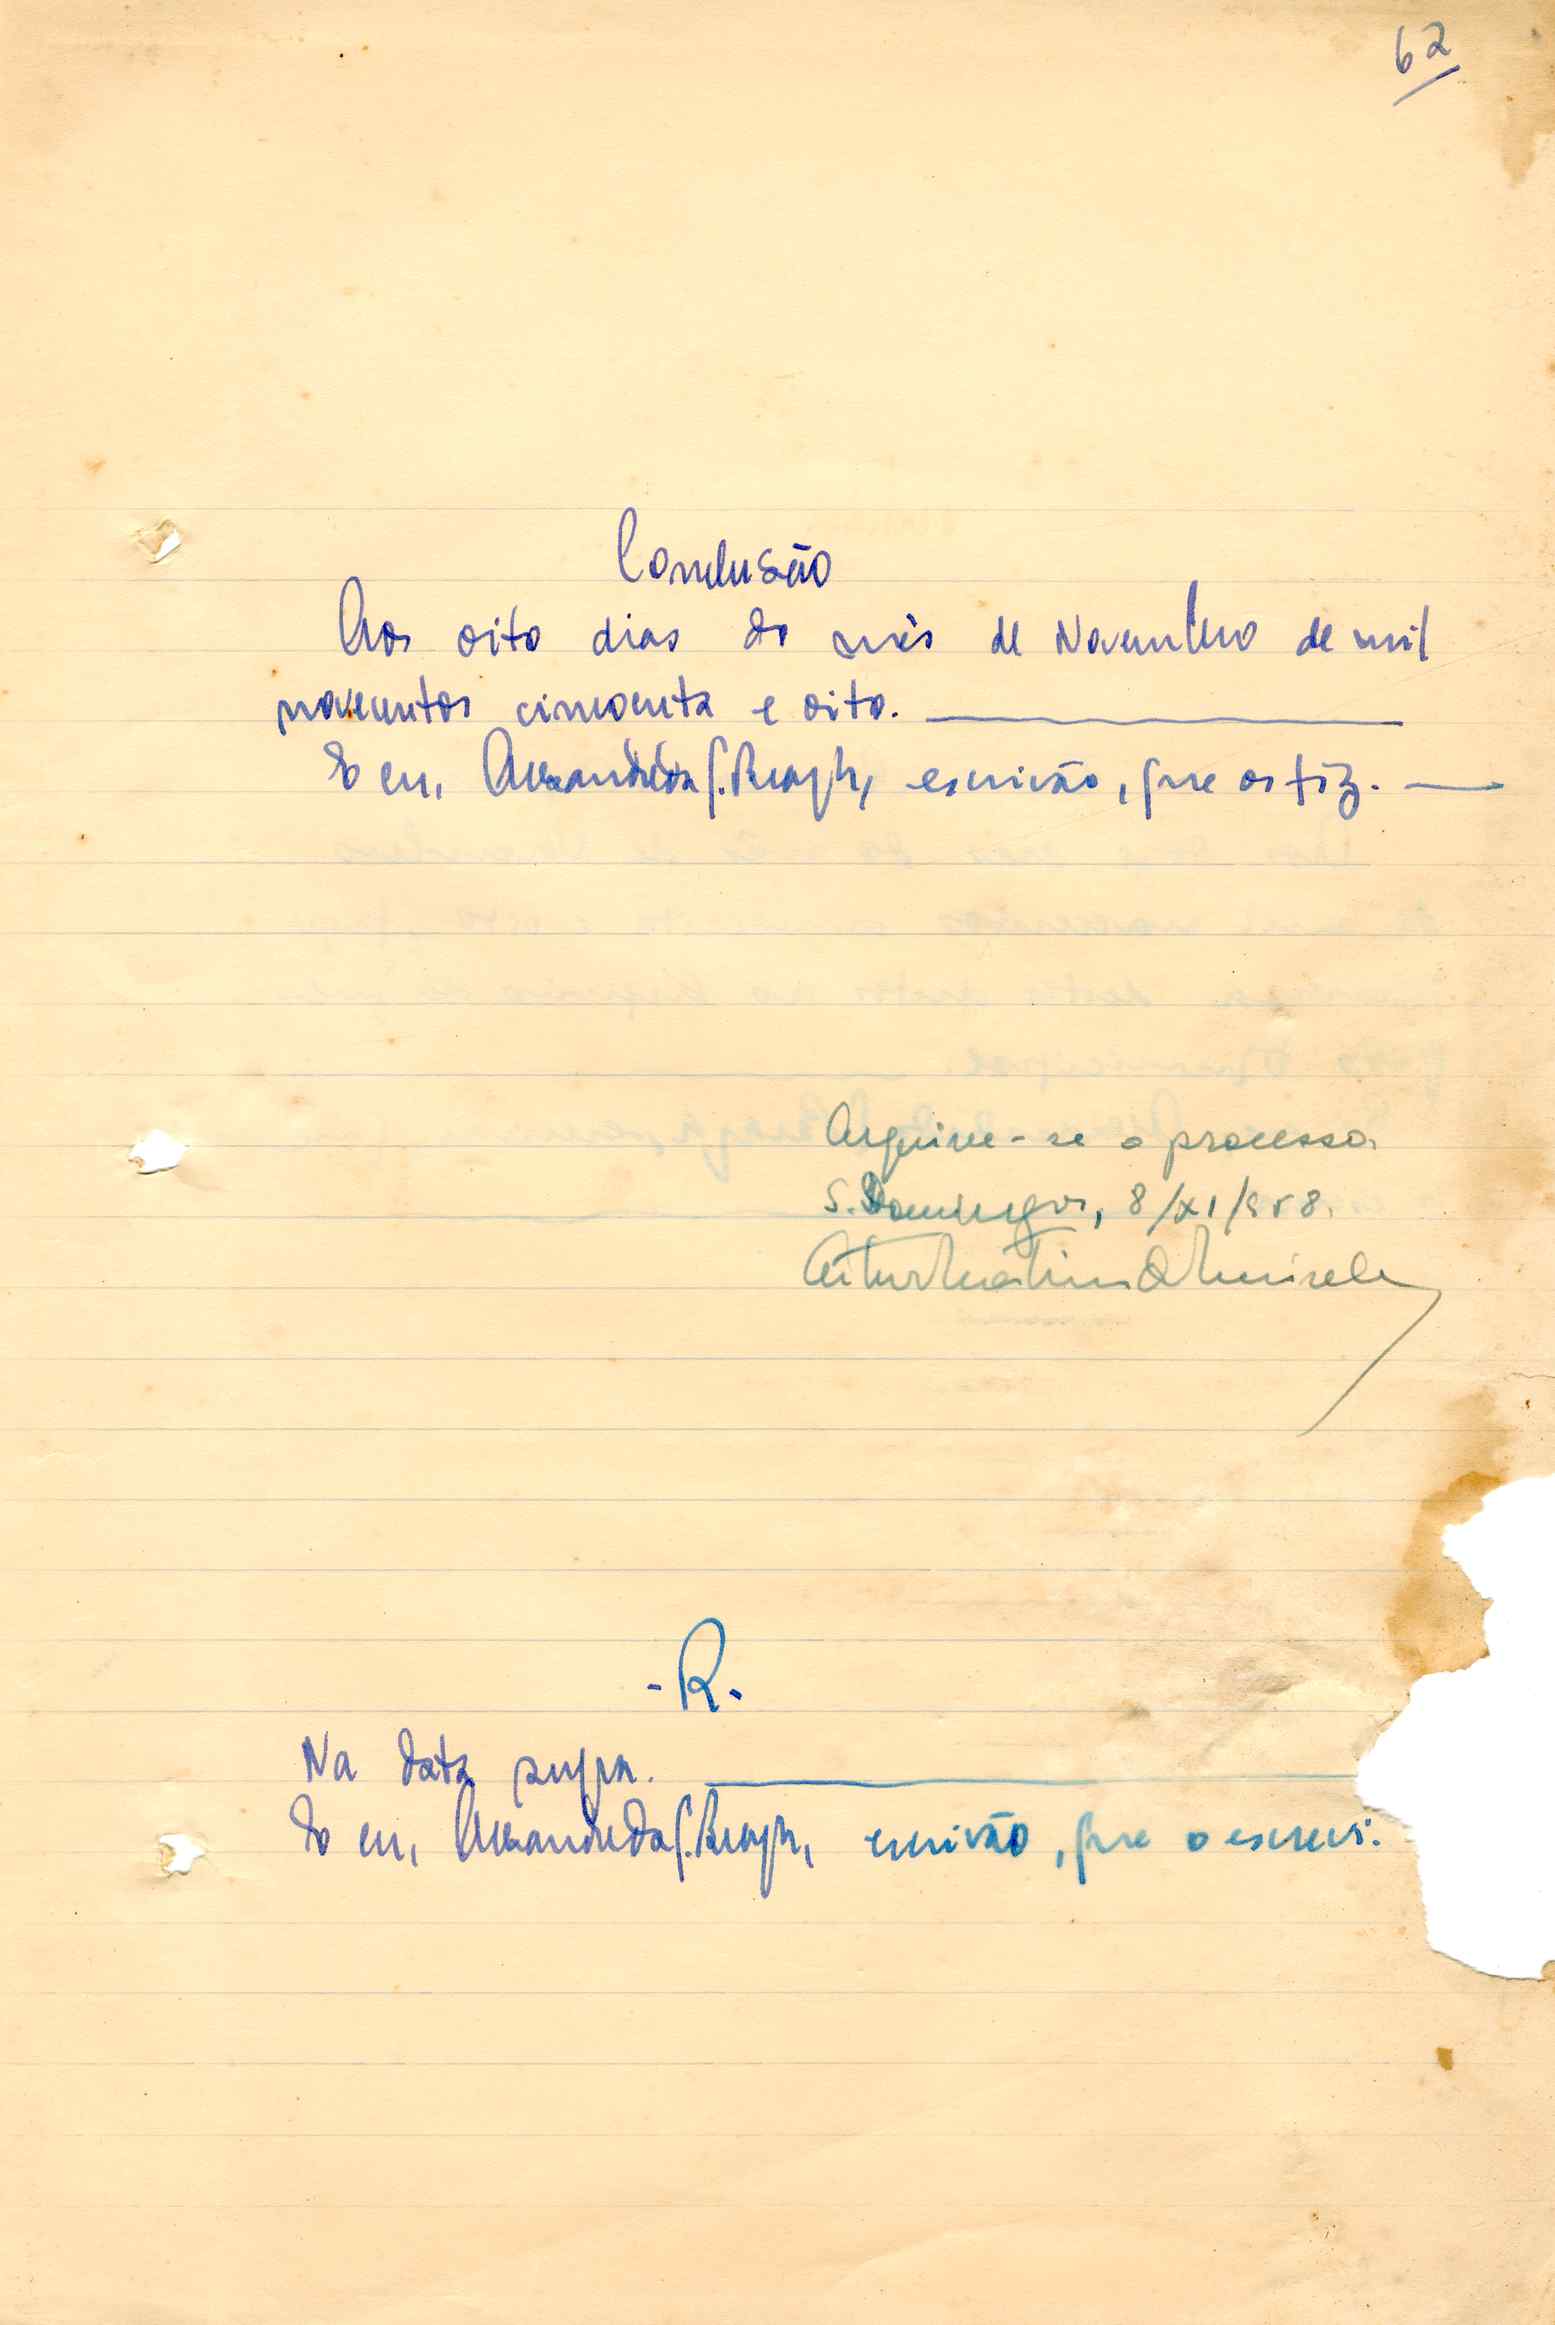 62
Conclusão
Aos oito dias do mês de Novembro de mil
novecentos cincoenta e oito.
E eu, Alexandre da S. Braga, escrivão, que os fiz.
Arquive-se o processo.
S. Domingos, 8/XI/958.
- R. -
Na data supra.
E eu, Alexandre da S. Braga, escrivão, que o escrevi.